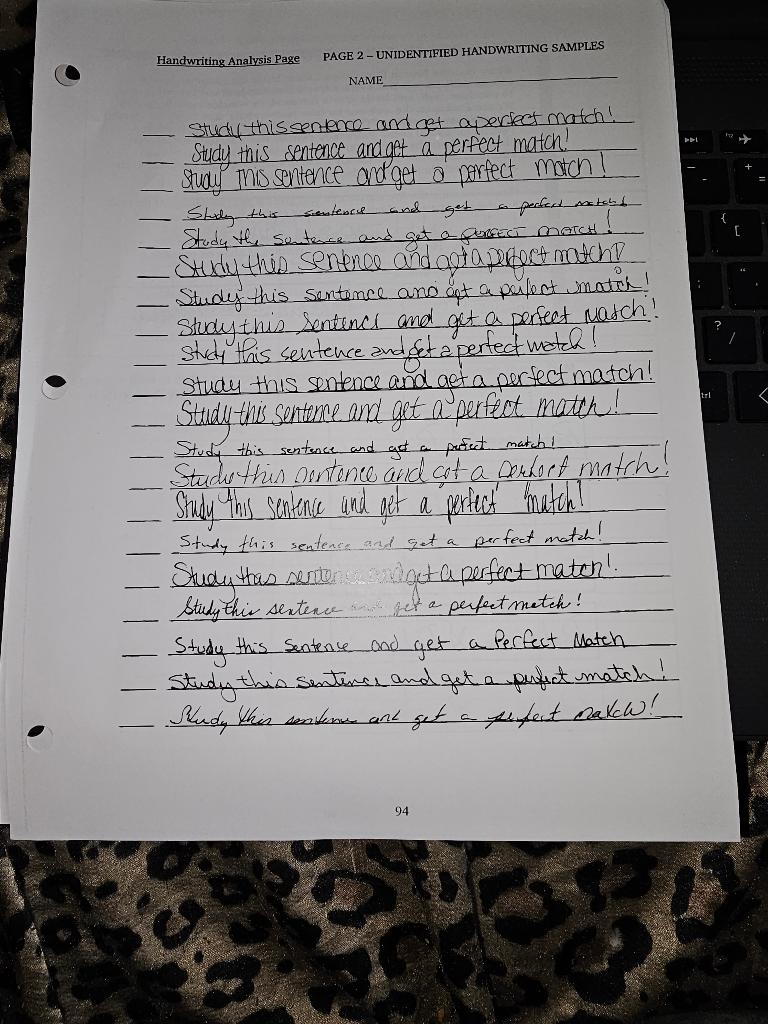 Handwriting Analysis Page PAGE 2 – UNIDENTIFIED HANDWRITING SAMPLES
NAME
Study this sentence and get a perfect match!
Study this sentence and get a perfect match!
Study this sentence and get a perfect match!
Study this sentence and get a perfect match!
Study the sentence and get a perfect match!
Study this sentence and get a perfect match!
Study this sentence and get a perfect match!
Study this sentence and get a perfect match!
Study this sentence and get a perfect match!
Study this sentence and get a perfect match!
Study this sentence and get a perfect match!
Study this sentence and get a perfect match!
Study this sentence and get a perfect match!
Study this sentence and get a "perfect" "match!
Study this sentence and get a perfect match!
Study this sentence and get a perfect match!
Study this sentence and get a perfect match!
Study this Sentence and get a Perfect Match
Study this sentence and get a perfect match!
Study this sentence and get a perfect match!
94